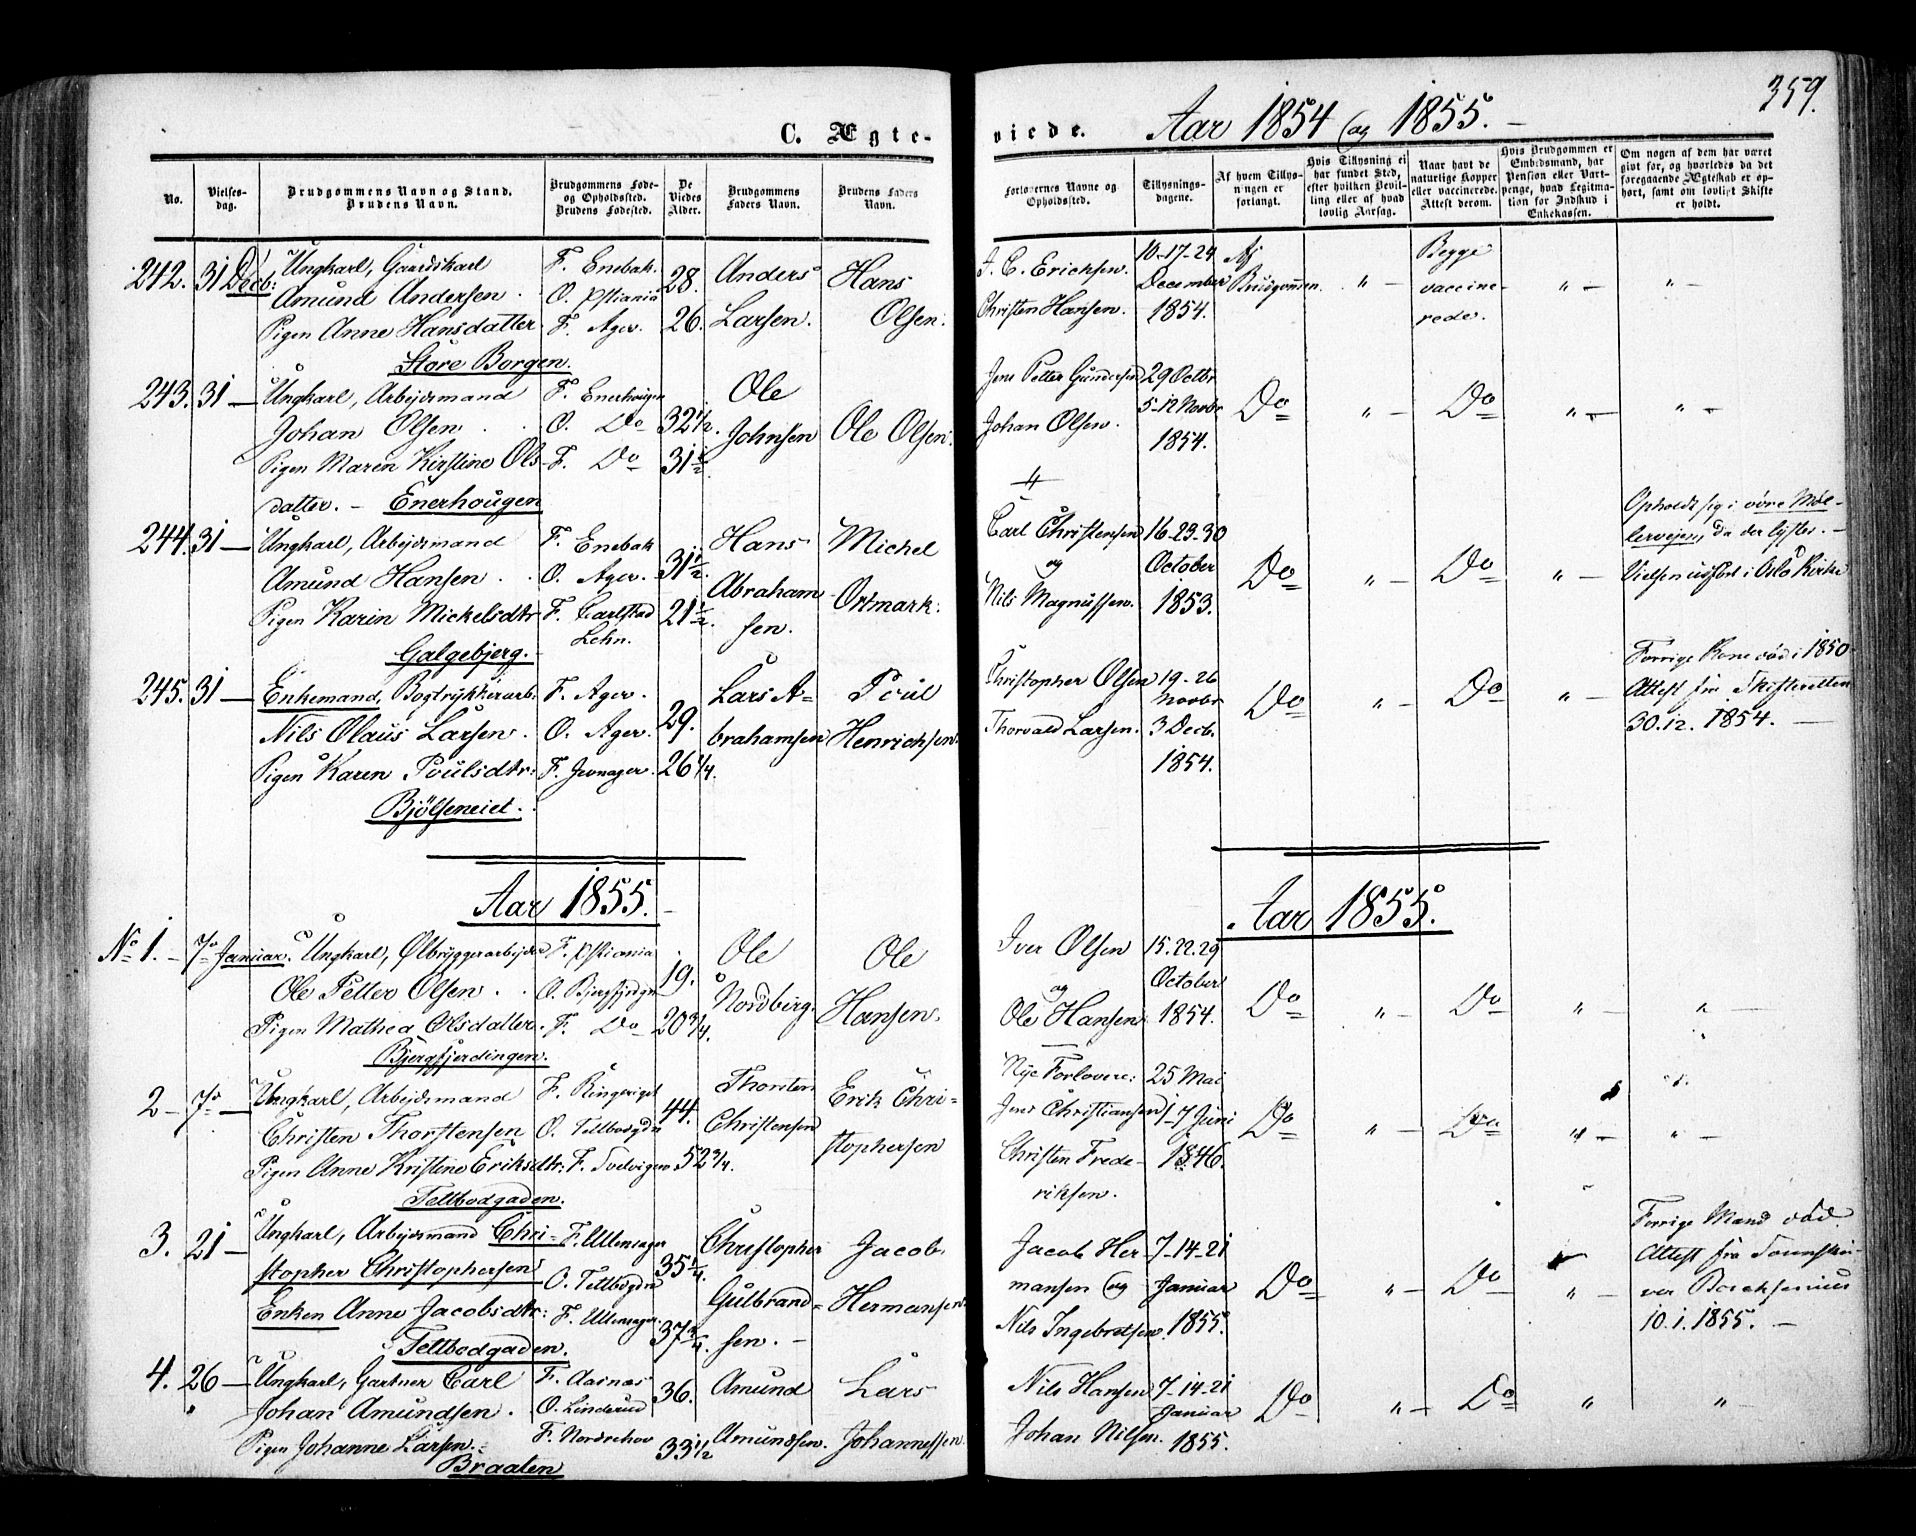 359.
C. Ægte-
viede. Aar 1854 og 1855. —
No.
Vielses-
dag.
Brudgommens Navn og Stand.
Brudens Navn.
Brudgommens Føde-
og Opholdssted.
Brudens Fødested.
De
Viedes
Alder.
Brudgommens
Faders Navn.
Brudens Faders
Navn.
Forlovernes Navne og
Opholdssted.
Tillysnings-
dagene.
Af hvem Tillys-
ningen er
forlangt.
Hvis Tillysning ei
har fundet Sted,
efter hvilken Bevil-
ling eller af hvad
lovlig Aarsag.
Naar havt de
naturlige Kopper
eller vaccinerede.
Attest derom.
Hvis Brudgommen er
Embedsmand, har
Pension eller Vart-
penge, hvad Legitima-
tion for Indskud i
Enkekassen.
Om nogen af dem har været
givt før, og hvorledes da det
foregaaende Ægteskab er op-
hørt, samt om lovligt Skifte
er holdt.
242. 31 Decb:
Ungkarl, Gaardskarl
Amund Andersen.
Pigen Anne Hansdatter
Store Borgen.
F. Enebak.
O. Xstiania
F. Ager.
28.
26.
Anders
Larsen.
Hans
Olsen.
J. C. Ericksen.
Christen Hansen.
10-17-24
December
1854.
Af
Brudgommen.
" —
Begge
vaccine-
rede.
" —
" —
243. 31 —
Ungkarl, Arbejdsmand
Johan Olsen
Pigen Maren Kirstine Ols-
datter. — Enerhougen
F. Enerhougen
O. Do
F. Do
32 1/2.
31 1/2
Ole
Johnsen
Ole Olsen.
Jens Petter Gundersen
Johan Olsen.
29 Octbr
5-12 Novbr
1854.
Do
" —
Do
" —
" —
244. 31 —
Ungkarl, Arbejdsmand
Amund Hansen.
Pigen Karin Mickelsdtr
Galgebjerg.
F. Enebak
O. Ager.
F. Carlstad
Lehn.
31 1/2.
21 1/2.
Hans
Abraham-
sen.
Michel
Ortmark.
Carl Christensen
og
Nils Magnussen.
16-23-30
October
1853.
Do
" —
Do
" —
Opholdt sig i øvre Møl-
lervejen, da der lystes. —
Vielsen udført i Oslo Kirke
245. 31 —
Enkemand, Bogtrykkerarb.
Nils Olaus Larsen.
Pigen Karen Poulsdtr:
Bjølseneiet.
F. Ager.
O. Ager.
F. Jevnager.
29.
26 1/4.
Lars A-
brahamsen
Poul
Henrichsen.
Christopher Olsen
Thorvald Larsen.
19-26
Novbr
3 Decb.
1854.
Do
" —
Do
" —
Forrige Kone død i 1850.
Attest fra Skifteretten
30.12. 1854. —
Aar 1855. —
Aar 1855.
No 1. — 7de Januar.
Ungkarl, Ølbryggerarbejder
Ole Petter Olsen.
Pigen Mathea Olsdatter.
Bjergfjerdingen.
F. Xstiania
O. Bjergfjrdgn
F. Do
19.
20 3/4.
Ole
Nordberg.
Ole
Hansen.
Iver Olsen
og
Ole Hansen
15.22.29
October
1854.
Do
" —
Do
" —
" —
2 — 7de —
Ungkarl, Arbejdsmand
Christen Thorstensen
Pigen Anne Kristine Eriksdtr:
Teltbodgaden.
F. Ringeriget
O. Teltbodgdn
F. Sodvigen
44.
52 3/4.
Thorsten
Christensen
Erik Chri-
stophersen
Nye Forlovere:
Jens Christiansen
Christen Frede-
riksen.
25 Mai
1-7 Juni
1846.
Do
" —
Do
" —
" —
3. 21 —
Ungkarl, Arbejdsmand Chri-
stopher Christophersen
Enken Anne Jacobsdtr:
Teltbodgaden.
F. Ullensager
O. Teltbogdn
F. Ullensager.
35 1/4.
37 3/4.
Christopher
Gulbrand-
sen. —
Jacob
Hermansen.
Jacob Her-
mansen og
Nils Ingebretsen.
7-14-21
Januar
1855.
Do
" —
Do
" —
Forrige Mand død.
Attest fra
10.1.1855. —
4. 26 —
Ungkarl, Gartner Carl
Johan Amundsen.
Pigen Johanne Larsen.
Braaten
F. Aasnæs
O. Linderud
F. Nordrehov
36.
33 1/2
Amund
Amundsen.
Lars
Johannessen.
Nils Hansen
Johan Nilsen.
7-14-21
Januar
1855.
Do
" —
Do
"
" —